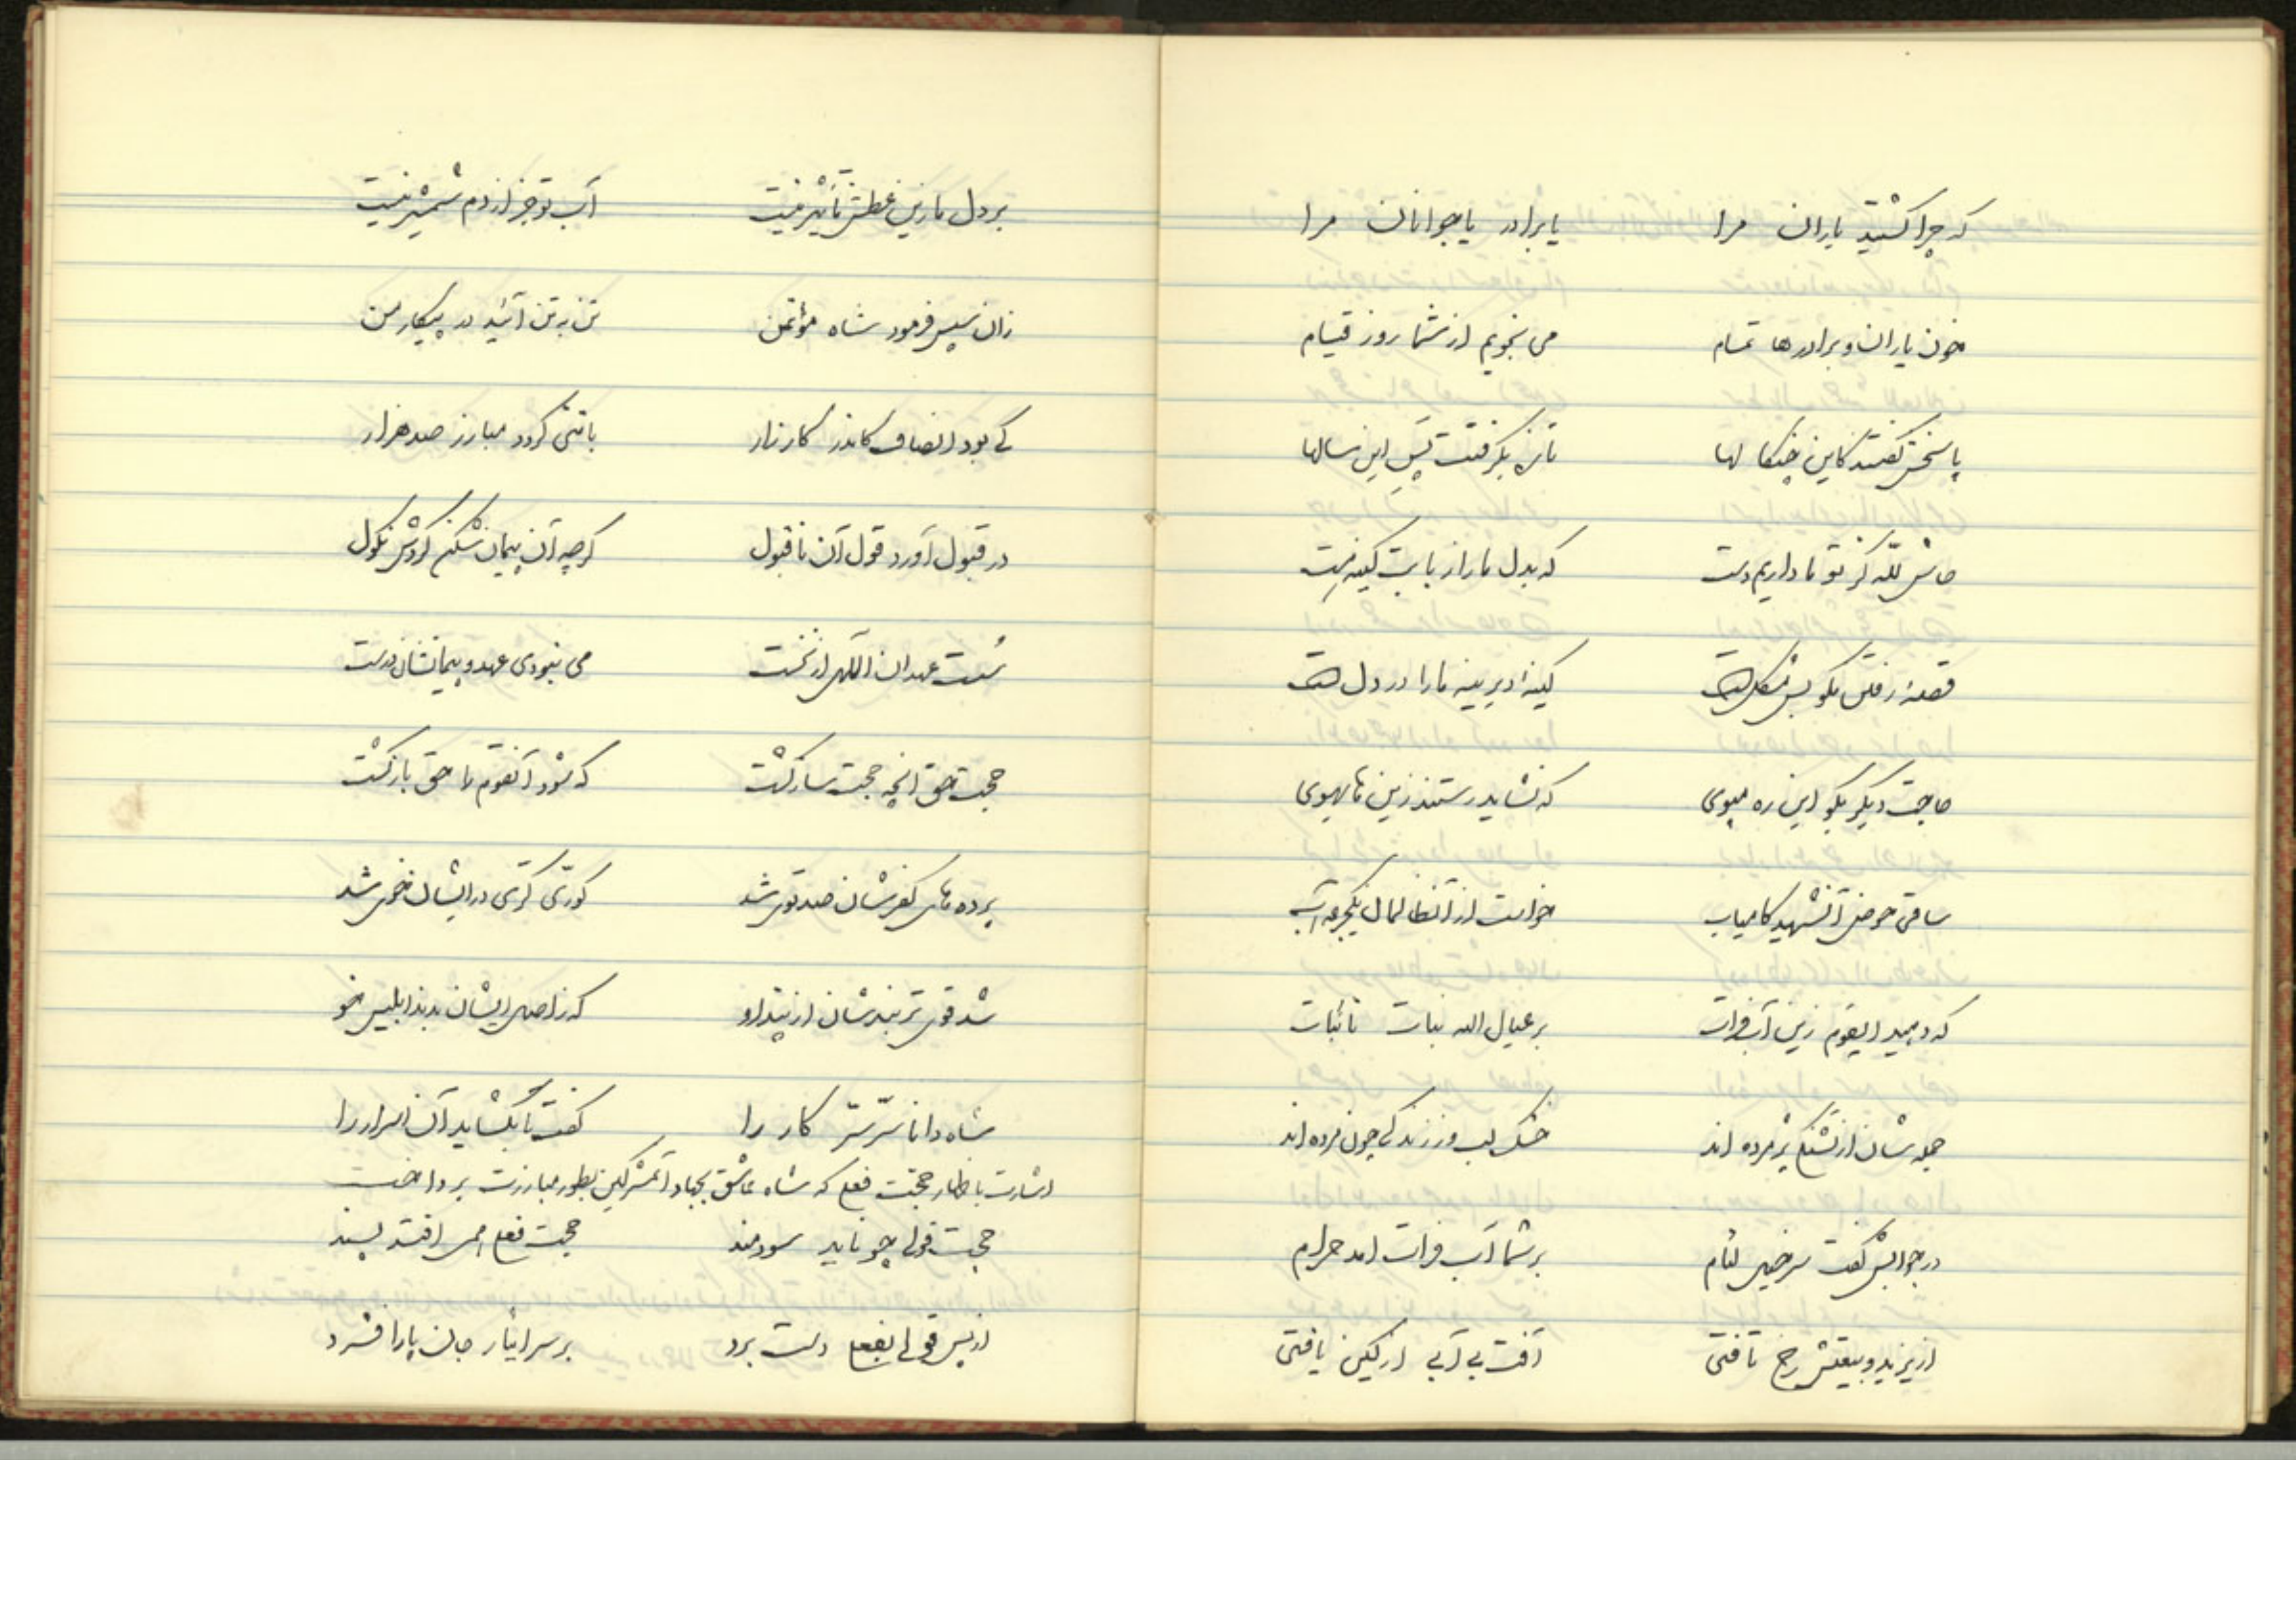 که چرا کشتید یاران مرا یا برادر یا جوانان مرا
خون یاران و برادرها تمام می نجویم از شما روز قیام
پاسخش گفتند کاین چنگالها تازه بگرفتت پس این سالها
حاش لله کز تو ما داریم دست که بدل ما را ز بابت کینه است
قصهٔ رفتن مگو بس مشکل است کینهٔ دیرینه ما را در دل است
حاجت دیگر بگو این ره مپوی که نشاید رستنت زین های هوی
ساقی حوض آنشهید کامیاب خواست از آنظالمان یکجرعه آب
که دهید ایقوم زین آب فرات بر عیال الله بنات تائبات
جمله شان از تشنگی پژمرده اند خشک لب وز زندگی چون مرده اند
در جوابش گفت سرخیل لئام بر شما آب فرات آمد حرام
از یزید و بیعتش رخ تافتی آفت بی آبی از کین یافتی
بر دل ما زین عطش تأثیر نیست آب تو جز از دم شمشیر نیست
زان سپس فرمود شاه مؤتمن تن به تن آئید در پیکار من
کی بود انصاف کاندر کارزار با تنی گردد مبارز صد هزار
در قبول آورد قول آن ناقبول گرچه آن پیمان شکن کردش نکول
سست عهدان از نخست می نبودی عهد و پیمانشان درست
حجت حق انچه حجت ساز گشت که شود آنقوم با حق باز گشت
پرده های کفرشان صد توی شد کوری کری در ایشان خوی شد
شد قوی تر بندشان از پند او که ز اصل ایشان بدند ابلیس خو
شاه دانا سرّ سرّ کار را گفت تا بگشاید آن اسرار را
اشارت باظهار حجت فعلی که شاه عاشق بجهاد آنمشرکین بطور مبارزت پرداخت
حجت قولی چو ناید سودمند حجت فعلی همی افتد پسند
از پس قولی بفعل دست برد بر سر ایثار جان پا را فشرد